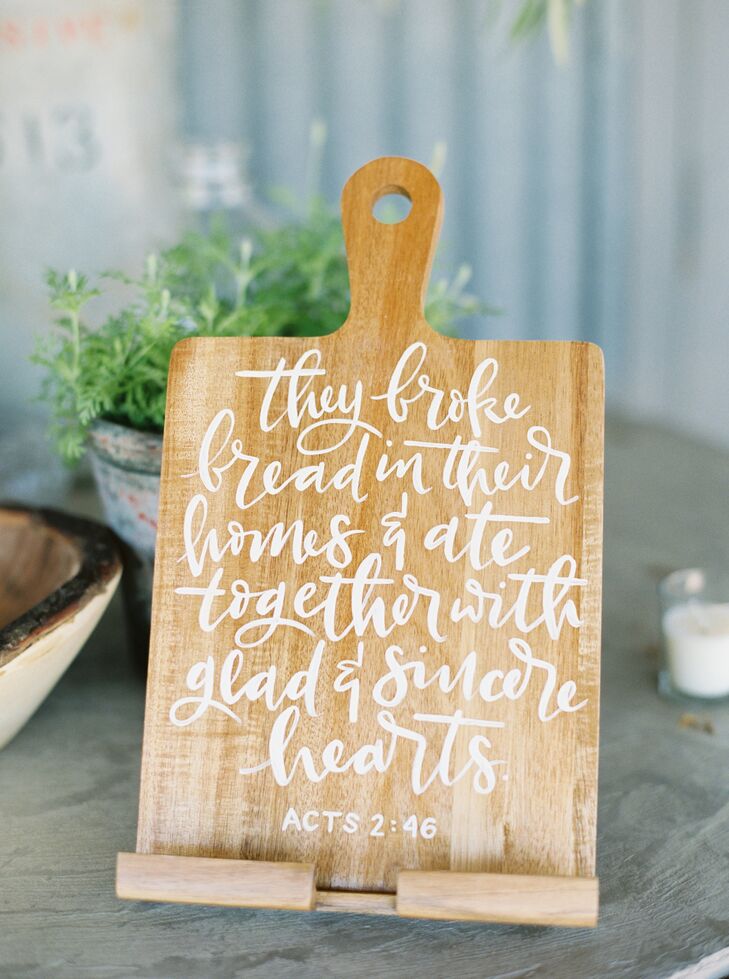 they broke
bread in their
homes & ate
together with
glad & sincere
hearts.
ACTS 2:46